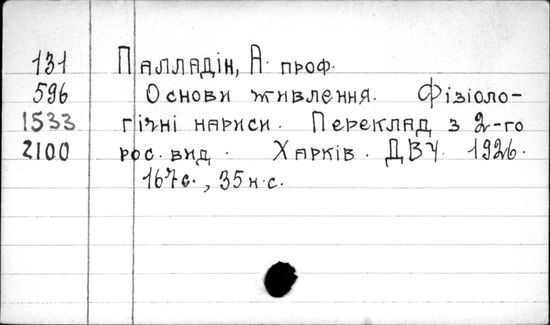 131 Палладін, А. проф.
596 Основи живлення. Фізіоло-
1533 гічні нариси. Переклад з 2-го
2100 рос. вид. Харків. ДВУ. 1926.
167 с., 35 н.с.